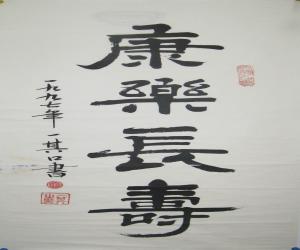 康樂長壽
一九九七年
其口書